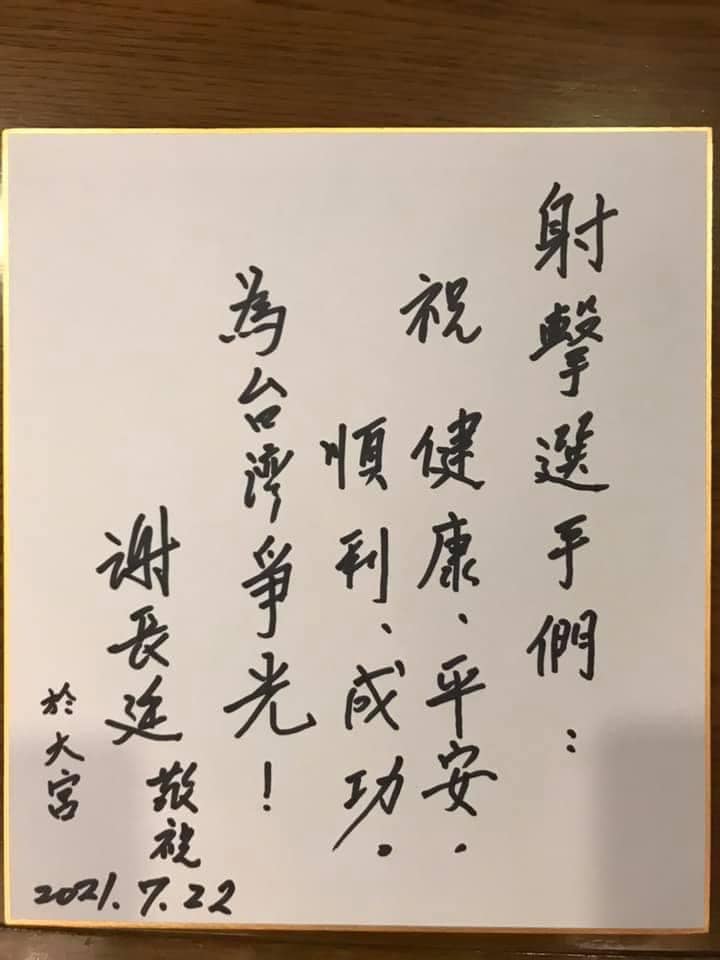 射擊選手們：
祝 健康、平安.
順利、成功.
為台湾爭光！
謝長廷
敬祝
於大宮
2021.7.22